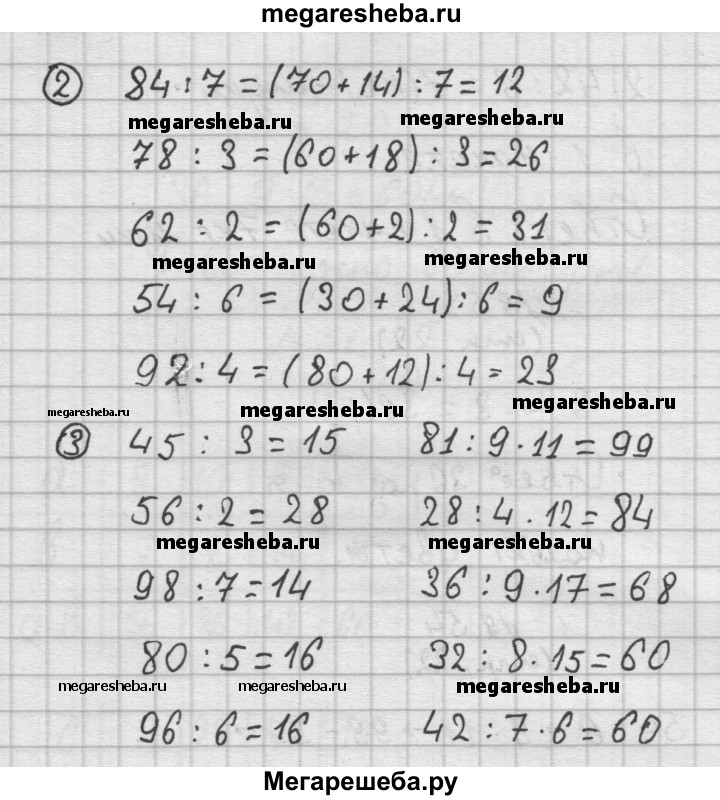 megaresheba.ru
② 84 : 7 = (70 + 14) : 7 = 12
megaresheba.ru megaresheba.ru
78 : 3 = (60 + 18) : 3 = 26
62 : 2 = (60 + 2) : 2 = 31
megaresheba.ru megaresheba.ru
54 : 6 = (30 + 24) : 6 = 9
92 : 4 = (80 + 12) : 4 = 23
megaresheba.ru megaresheba.ru megaresheba.ru
③ 45 : 3 = 15 81 : 9 · 11 = 99
56 : 2 = 28 28 : 4 · 12 = 84
megaresheba.ru megaresheba.ru
98 : 7 = 14 36 : 9 · 17 = 68
80 : 5 = 16 32 : 8 · 15 = 60
megaresheba.ru megaresheba.ru megaresheba.ru
96 : 6 = 16 42 : 7 · 6 = 60
Мегарешеба.ру